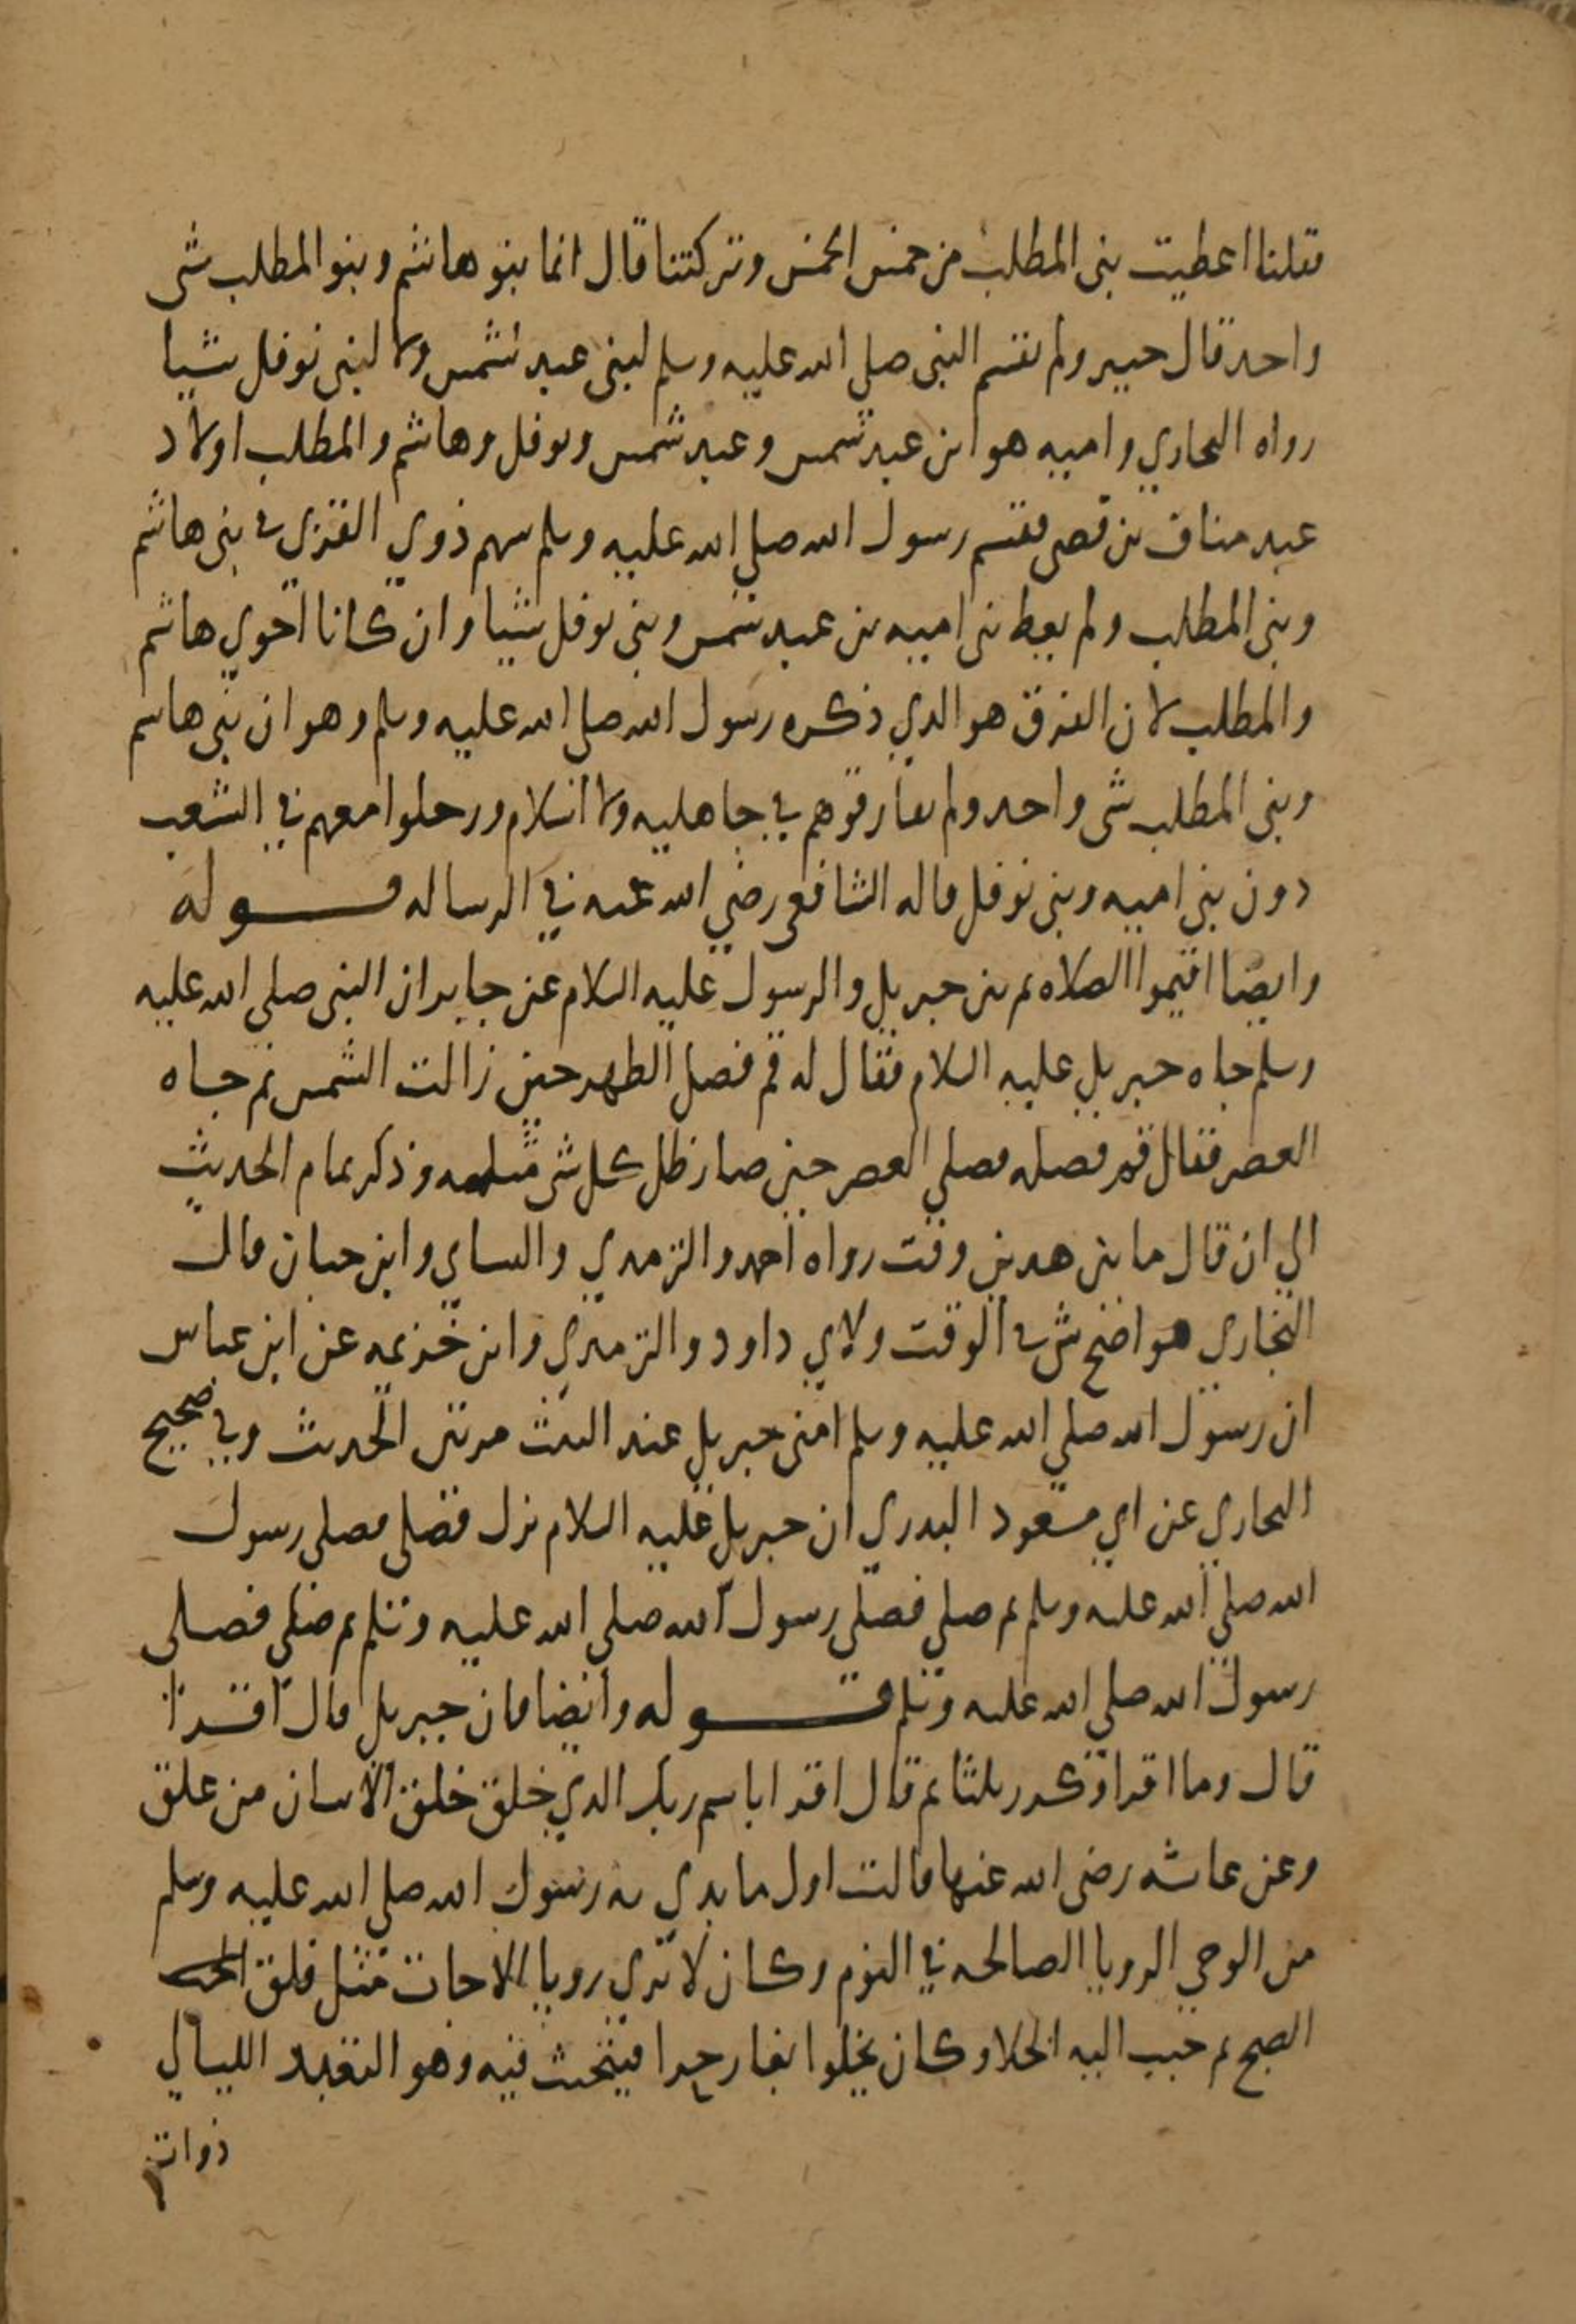 فقلنا اعطيت بنى المطلب من خمس الخمس وتركتنا قال انما بنو هاشم وبنو المطلب شى
واحد قال جبير ولم يقسم النبى صلي الله عليه وسلم لبنى عبد شمس ولا لبنى نوفل شيا
رواه البخاري واميه هو ابن عبد شمس وعبد شمس ونوفل وهاشم والمطلب اولاد
عبد مناف بن قصى فقسم رسول الله صلي الله عليه وسلم سهم ذوي القربي في بنى هاشم
وبنى المطلب ولم يعط بنى اميه بن عبد شمس وبنى نوفل شيا وان كانا اخوي هاشم
والمطلب لان الفرق هو الذي ذكره رسول الله صلي الله عليه وسلم وهو ان بنى هاشم
وبنى المطلب شى واحد ولم يفارقوهم في جاهليه ولا اسلام ورحلوا معهم في الشعب
دون بنى اميه وبنى نوفل قاله الشافعى رضي الله عنه في الرساله قوله
وايضا اقيموا الصلاه ثم بين جبريل والرسول عليه السلام عن جابر ان النبى صلي الله عليه
وسلم جاه جبريل عليه السلام فقال له قم فصل الظهر حين زالت الشمس ثم جاه
العصر فقال قم فصله فصلي العصر حين صار ظل كل شى مثله وذكر تمام الحديث
الي ان قال ما بين هذين وقت رواه احمد والترمذي والنساي وابن حبان قال
البخاري هو اصح شى في الوقت ولابي داود والترمذي وابن خزيمه عن ابن عباس
ان رسول الله صلي الله عليه وسلم امنى جبريل عند البيت مرتين الحديث وفي صحيح
البخاري عن ابي مسعود البدري ان جبريل عليه السلام نزل فصلى فصلى رسول
الله صلي الله عليه وسلم ثم صلي فصلى رسول الله صلي الله عليه وسلم ثم صلى فصلى
رسول الله صلي الله عليه وسلم قوله وايضا فان جبريل قال اقرا
قال وما اقرا وكرر ثلثا ثم قال اقرا باسم ربك الذي خلق خلق الانسان من علق
وعن عايشه رضى الله عنها قالت اول ما بدي به رسول الله صلي الله عليه وسلم
من الوحي الرويا الصالحه في النوم وكان لا يري رويا الا جات مثل فلق
الصبح ثم حبب اليه الخلا وكان يخلوا بغار حرا فيتحنث فيه وهو التعبد الليالي
ذوات